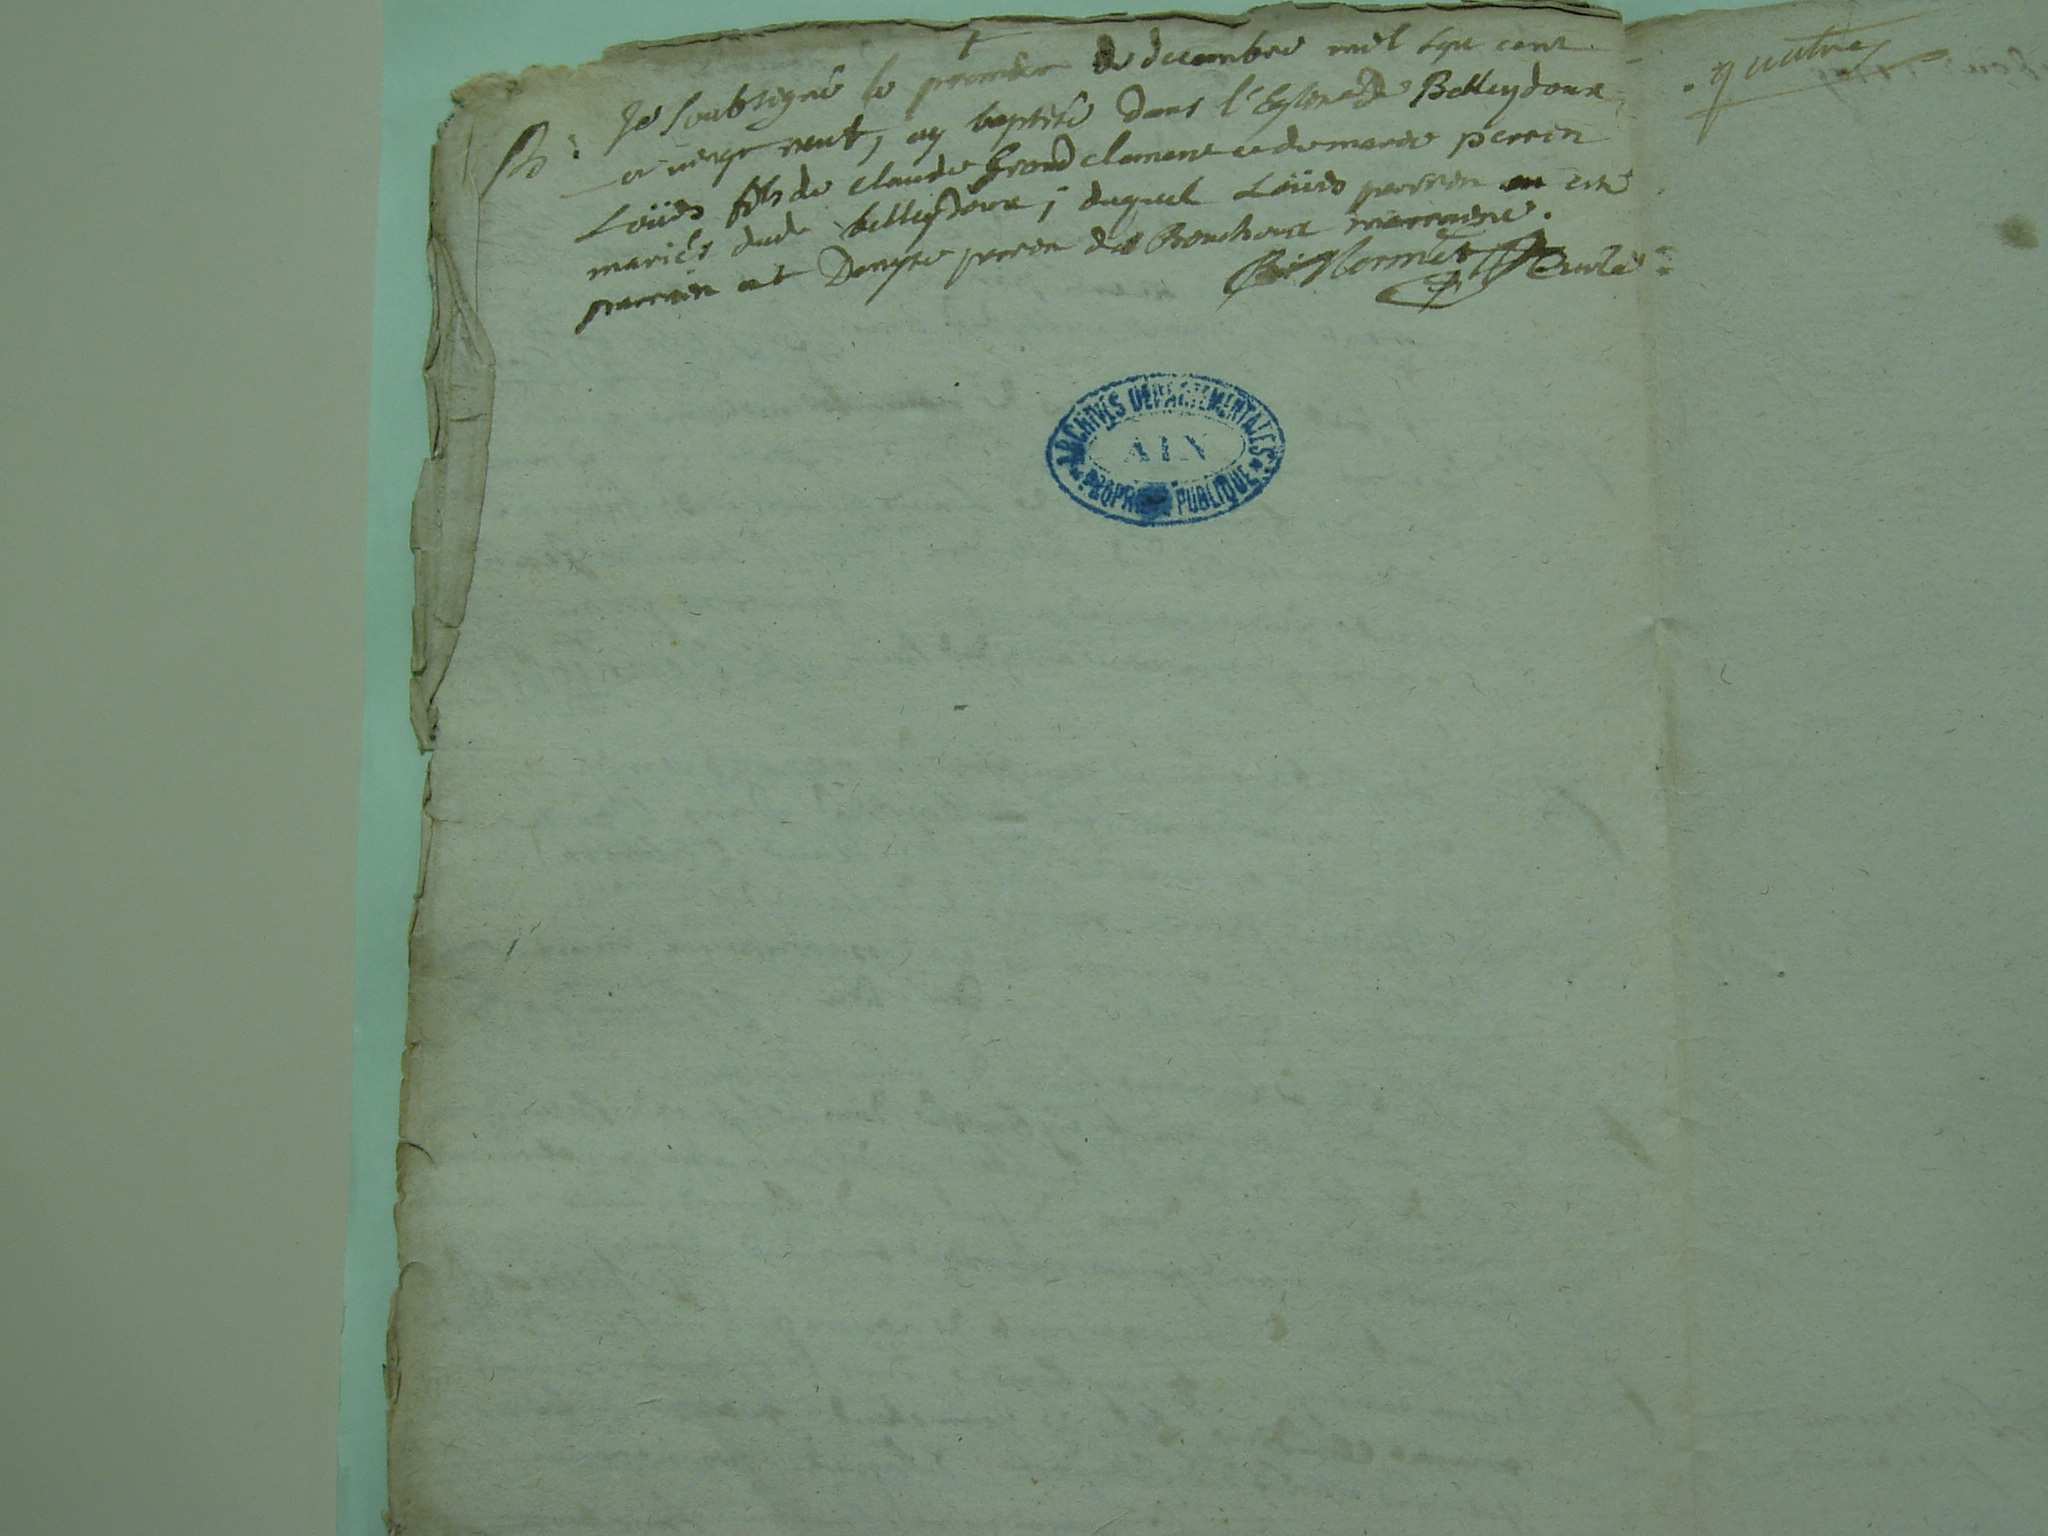 Je soubsigné le premier de decembre mil sept cent
et vingt neuf, ay baptisé dans l'Eglise de Belleydoux
Loüis fils de claude Grandclement et de marie perrin
mariés dudt belleydoux ; duquel Loüis perrin en est
parrain et Denyse perrin des Bouchoux marraine.
quatre
ARCHIVES DEPARTEMENTALES
AIN
PROPRIETE PUBLIQUE